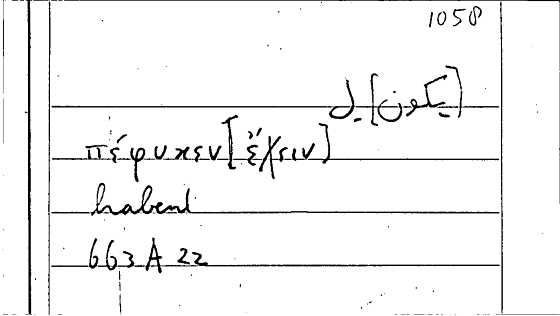 1058
[يكون] ل
πέφυκεν [ἔχειν]
habent
663 A 22